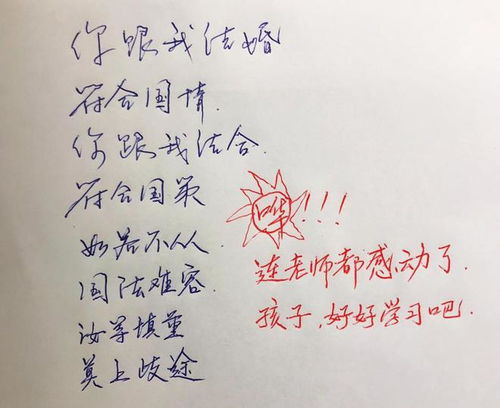 你跟我结婚
符合国情.
你跟我结合.
符合国策
如若不从
国法难容.
汝等慎重
莫上歧途
哗!!!
连老师都感动了.
孩子,好好学习吧.